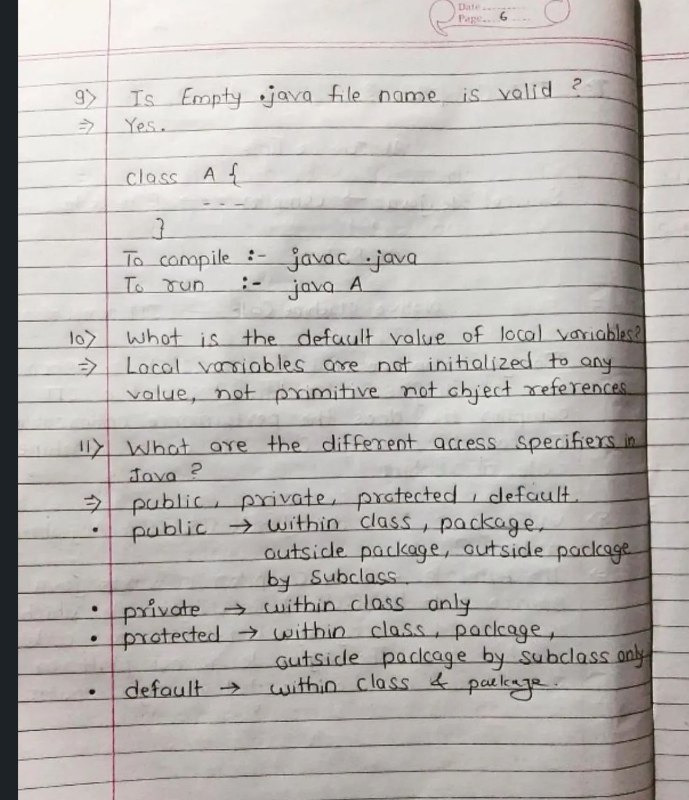 Date
Page 6
9) Is Empty .java file name is valid ?
⇒ Yes.
class A {
- - -
}
To compile :- javac .java
To run :- java A
10) What is the default value of local variables?
⇒ Local variables are not initialized to any
value, not primitive not object references
11) What are the different access specifiers in
Java ?
⇒ public, private, protected, default.
• public → within class, package,
outside package, outside package
by subclass.
• private → within class only
• protected → within class, package,
outside package by subclass only
• default → within class & package.